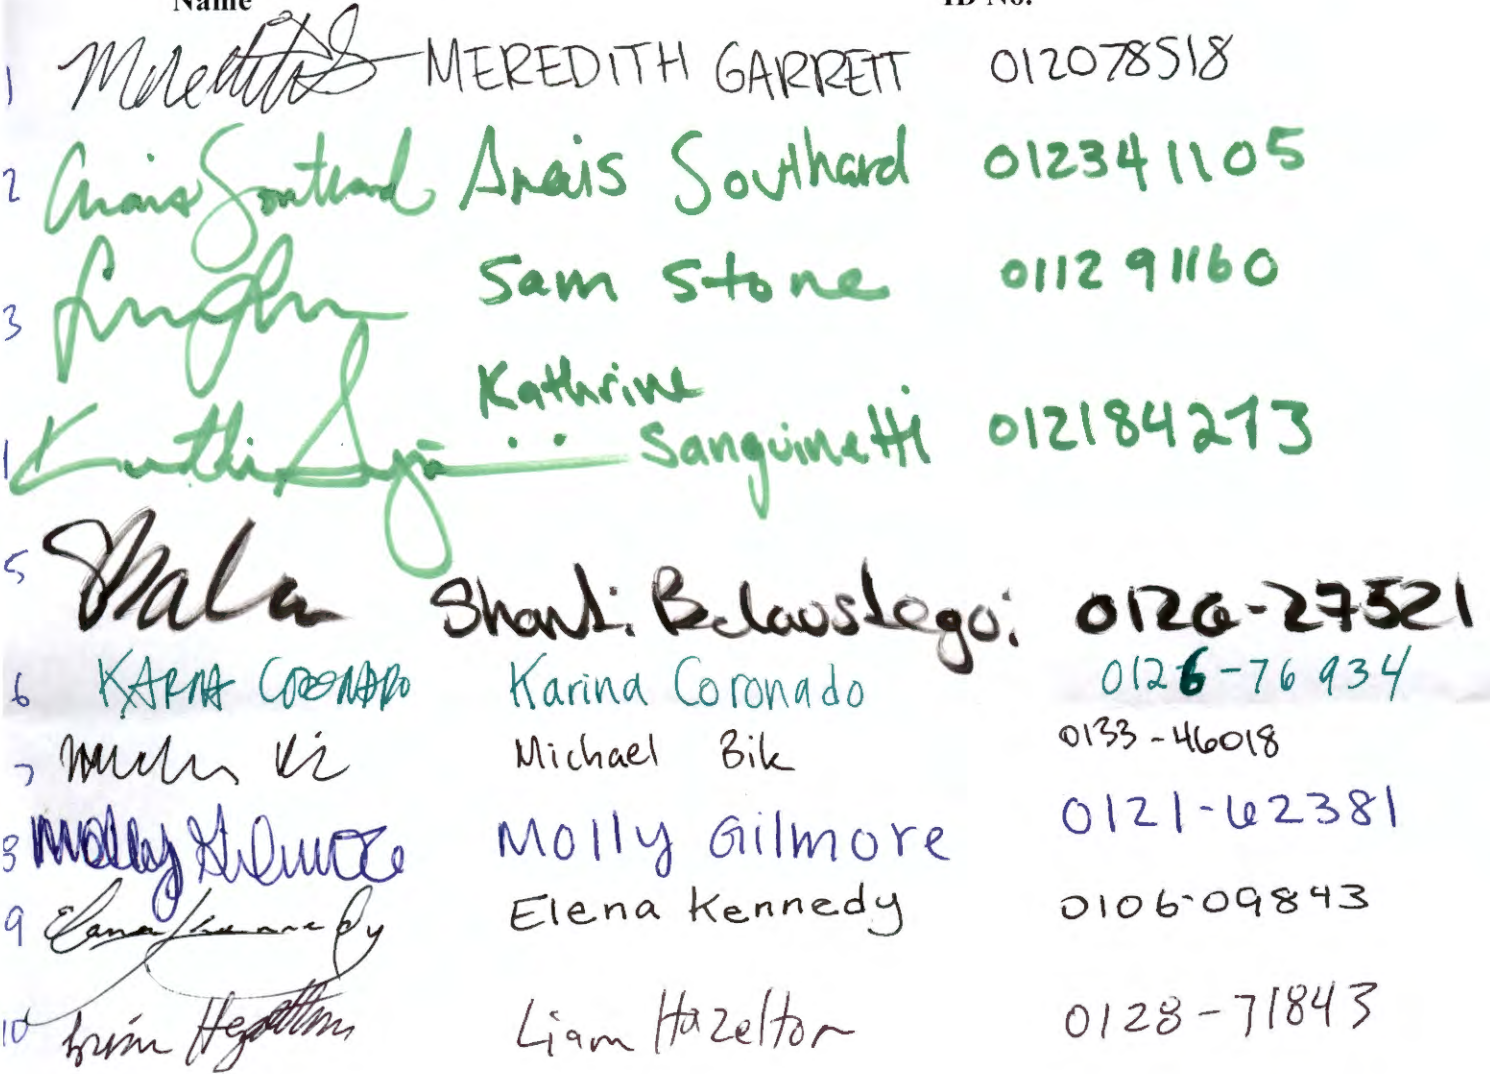 Name ID No.
1 Meredith G MEREDITH GARRETT 012078518
2 Anais Southard Anais Southard 012341105
3 Sam Stone 011291160
Kathrine
Sanguinetti 012184273
5 Shanti Belaustegoi 0126-27521
6 KARINA CORONADO Karina Coronado 0126-76934
7 Michael Bik 0133-46018
8 Molly Gilmore Molly Gilmore 0121-62381
9 Elena Kennedy Elena Kennedy 0106-09843
10 Liam Hazelton Liam Hazelton 0128-71843